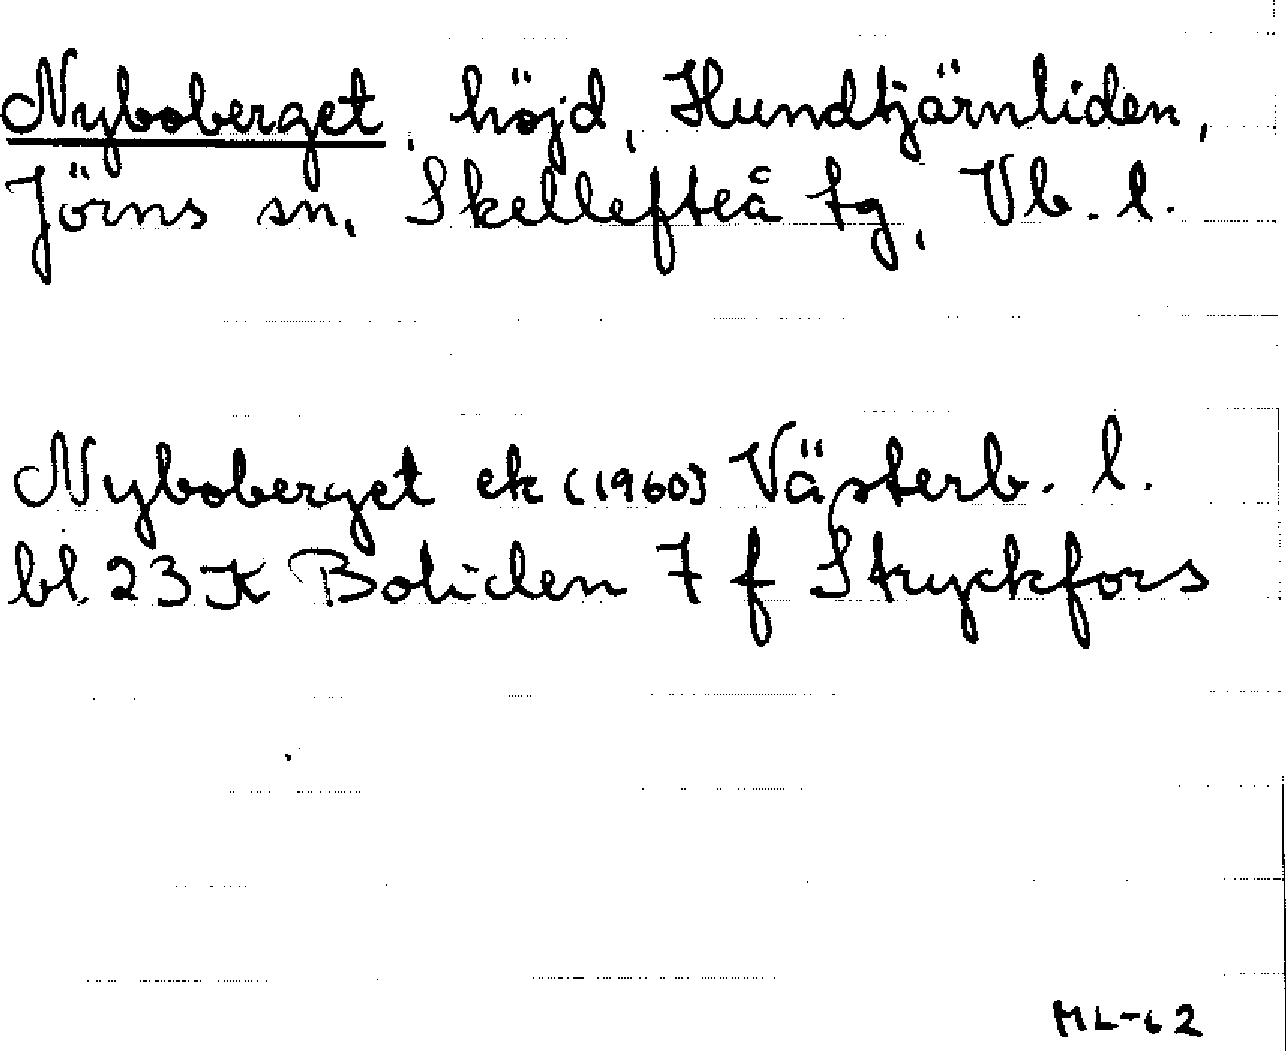 Nyboberget, höjd, Hundtjärnliden,
Jörns sn, Skellefteå tg, Vb. l.
Nyboberget ek (1960) Västerb. l.
bl. 23 K Boliden 7 f Stryckfors
ML-62